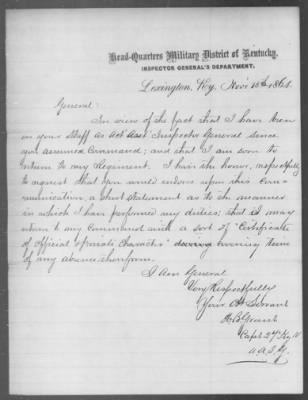 Head-Quarters Military District of Kentucky,
INSPECTOR GENERAL'S DEPARTMENT.
Lexington, Ky, Nov 15th 1864.
General:
In view of the fact that I have been
on your Staff as Act Asst Inspector General since
you assumed command; and that I am soon to
return to my Regiment. I have the honor, respectfully
to request that you would endorse upon this Com-
munication, a short statement as to the manner
in which I have performed my duties; that I may
return to my Command with a sort of "Certificate
of official & private character" covering time
of my absence therefrom.
I Am General
Very Respectfully
Your Obt Servant
Capt 2
A. A. I. G.